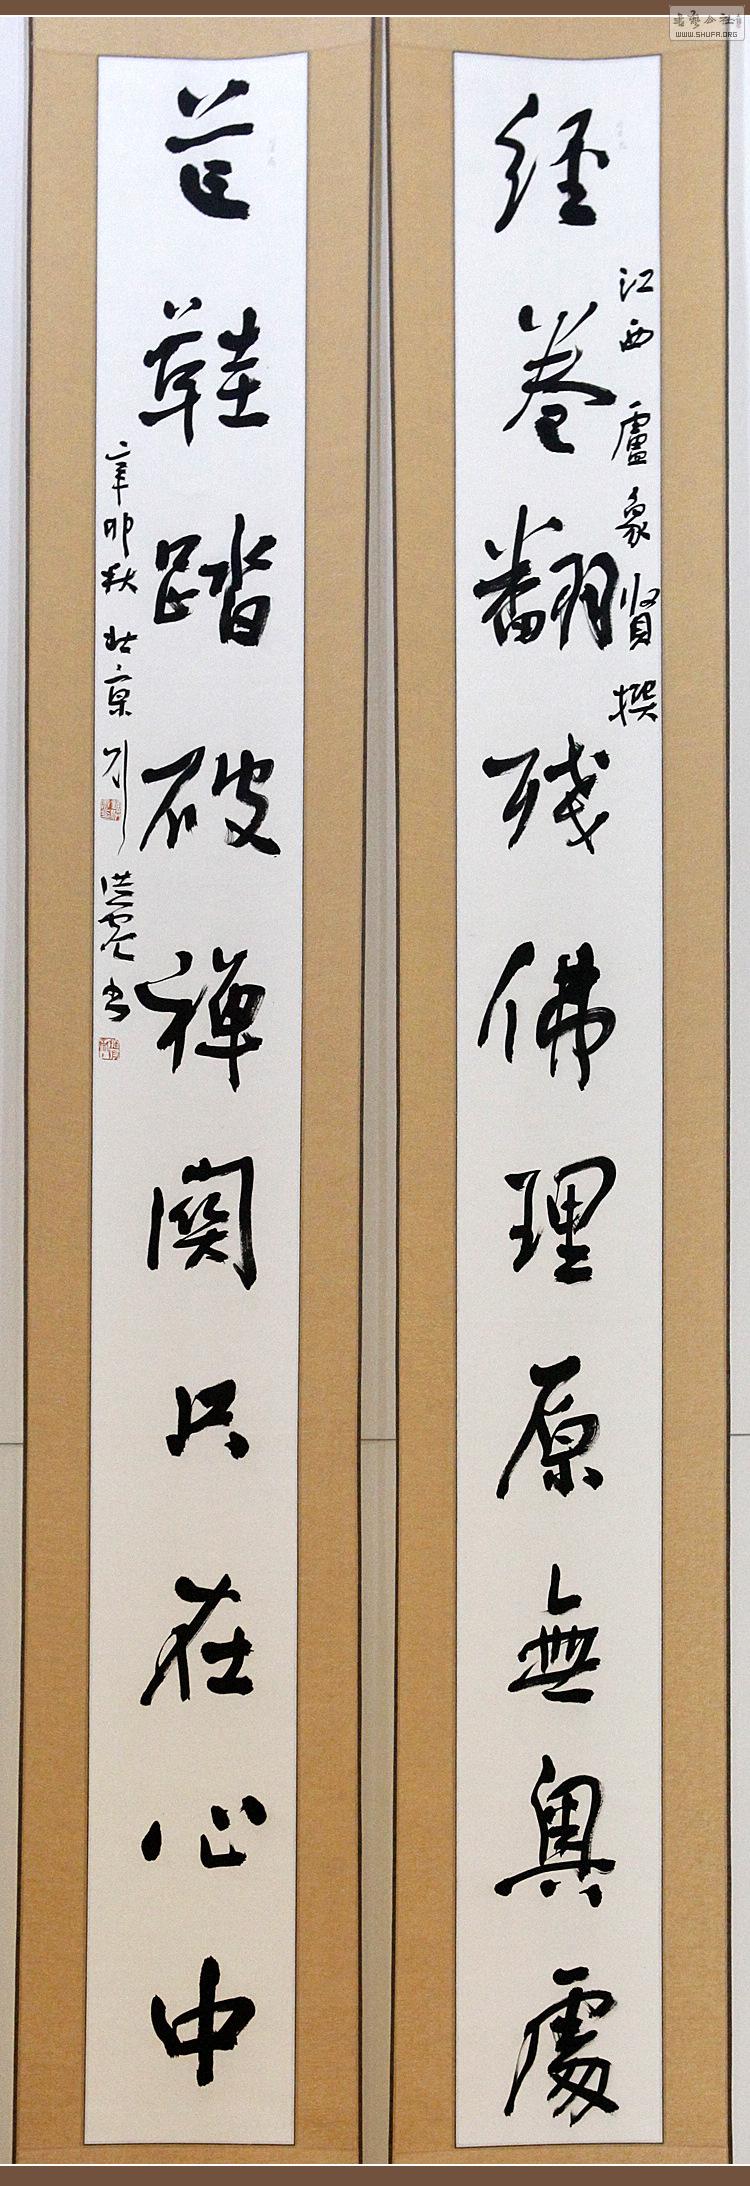 經卷翻殘佛理原無奧處
江西盧象賢撰
芒鞋踏破禪關只在心中
辛卯秋北京劉洪彪書
書藝公社
WWW.SHUFA.ORG